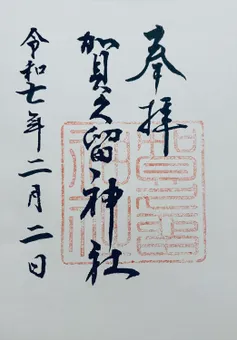 奉拝
加賀久留神社
令和七年二月二日